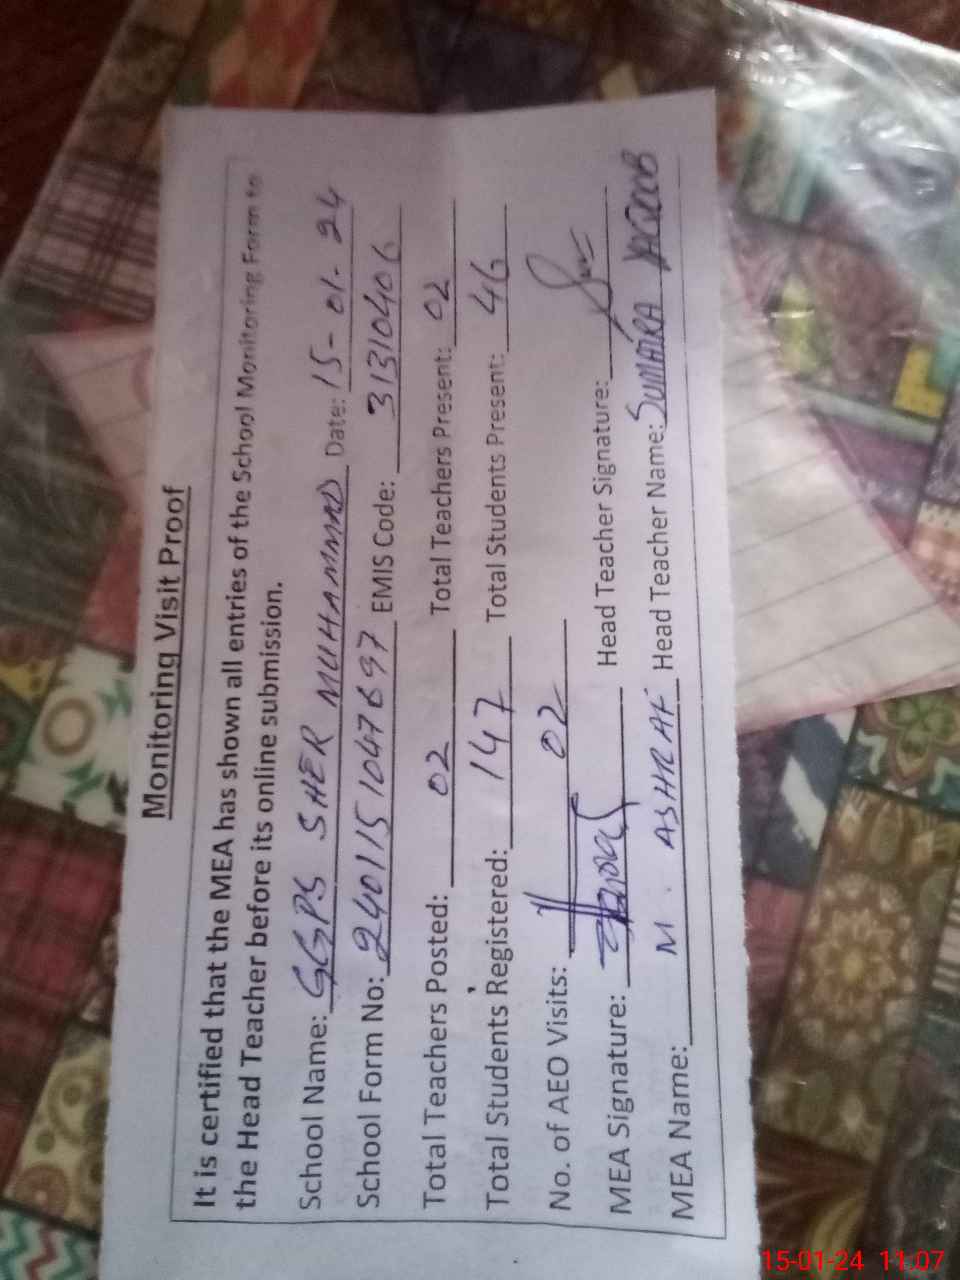 Monitoring Visit Proof
It is certified that the MEA has shown all entries of the School Monitoring Form to
the Head Teacher before its online submission.
School Name: GGPS SHER MUHAMMAD Date: 15-01-24
School Form No: 240115 1047697 EMIS Code: 31310406
Total Teachers Posted: 02 Total Teachers Present: 02
Total Students Registered: 147 Total Students Present: 46
No. of AEO Visits: 02
MEA Signature: Head Teacher Signature:
MEA Name: M. ASHRAF Head Teacher Name: SUMAIRA YAQOOB
15-01-24 11:07